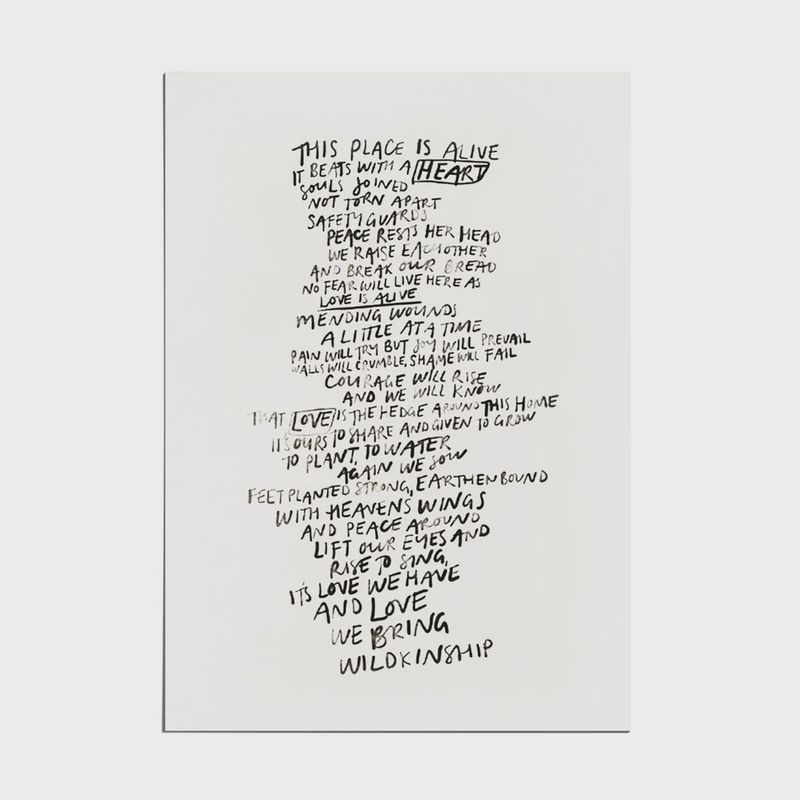 THIS PLACE IS ALIVE
IT BEATS WITH A HEART
SOULS JOINED
NOT TORN APART
SAFETY GUARDS
PEACE RESTS HER HEAD
WE RAISE EACHOTHER
AND BREAK OUR BREAD
NO FEAR WILL LIVE HERE AS
LOVE IS ALIVE
MENDING WOUNDS
A LITTLE AT A TIME
PAIN WILL TRY BUT JOY WILL PREVAIL
WALLS WILL CRUMBLE, SHAME WILL FAIL
COURAGE WILL RISE
AND WE WILL KNOW
THAT LOVE IS THE HEDGE AROUND THIS HOME
IT'S OURS TO SHARE AND GIVEN TO GROW
TO PLANT, TO WATER
AGAIN WE SOW
FEET PLANTED STRONG, EARTHEN BOUND
WITH HEAVENS WINGS
AND PEACE AROUND
LIFT OUR EYES AND
RISE TO SING,
IT'S LOVE WE HAVE
AND LOVE
WE BRING
WILDKINSHIP